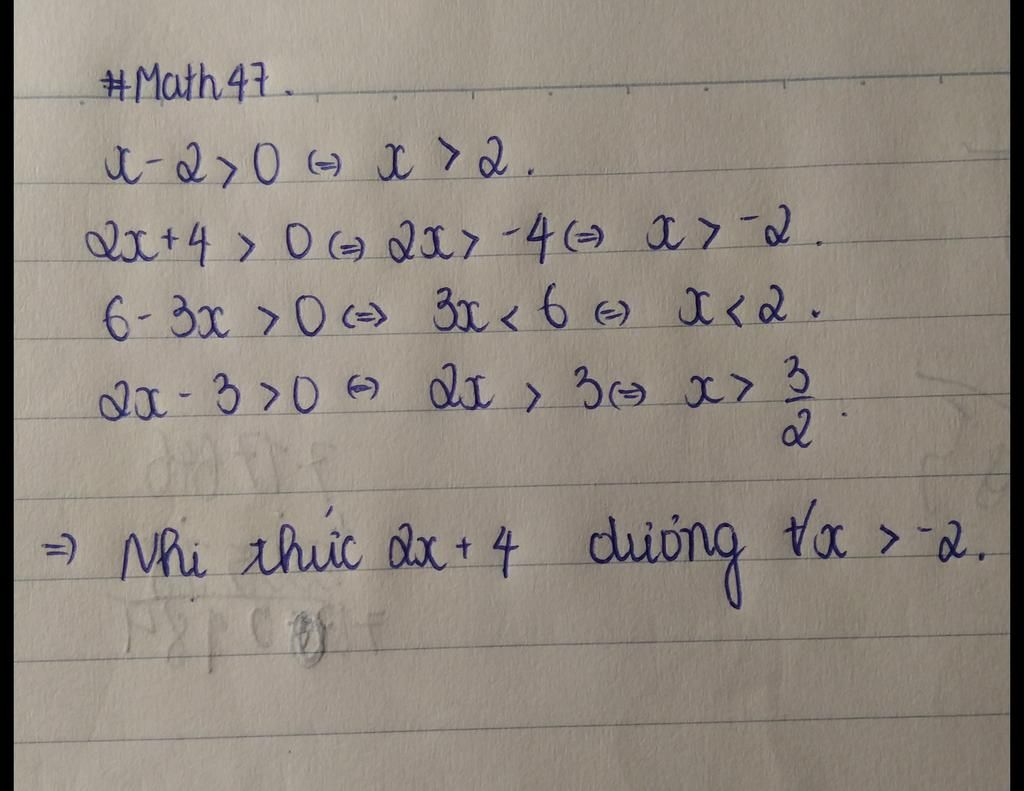 #Math47.
x - 2 > 0 (=) x > 2.
2x + 4 > 0 (=) 2x > -4 (=) x > -2.
6 - 3x > 0 (=) 3x < 6 (=) x < 2.
2x - 3 > 0 (=) 2x > 3 (=) x > 3/2.
=) Nhị thức 2x + 4 dương ∀x > -2.